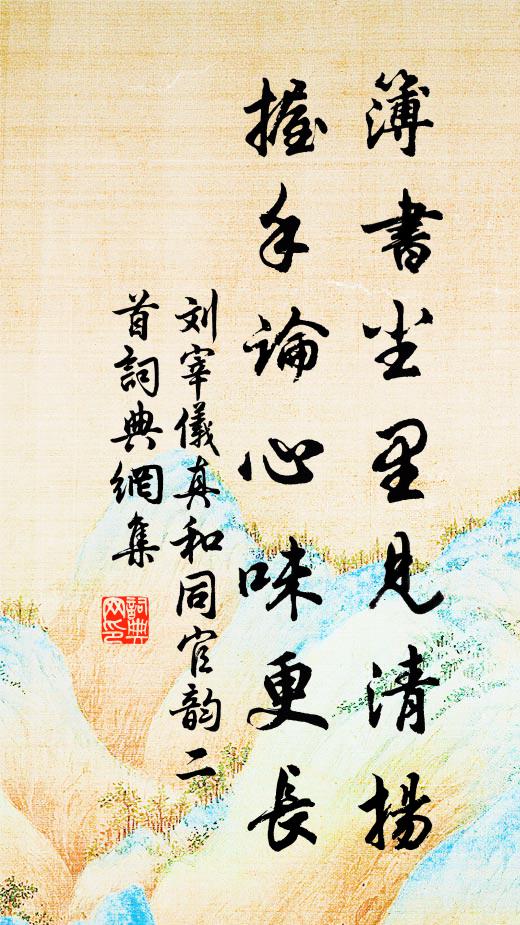 簿書尘里見清揚
握手論心味更長
刘宰儀真和同官韵二
首詞典網集
詞典网印